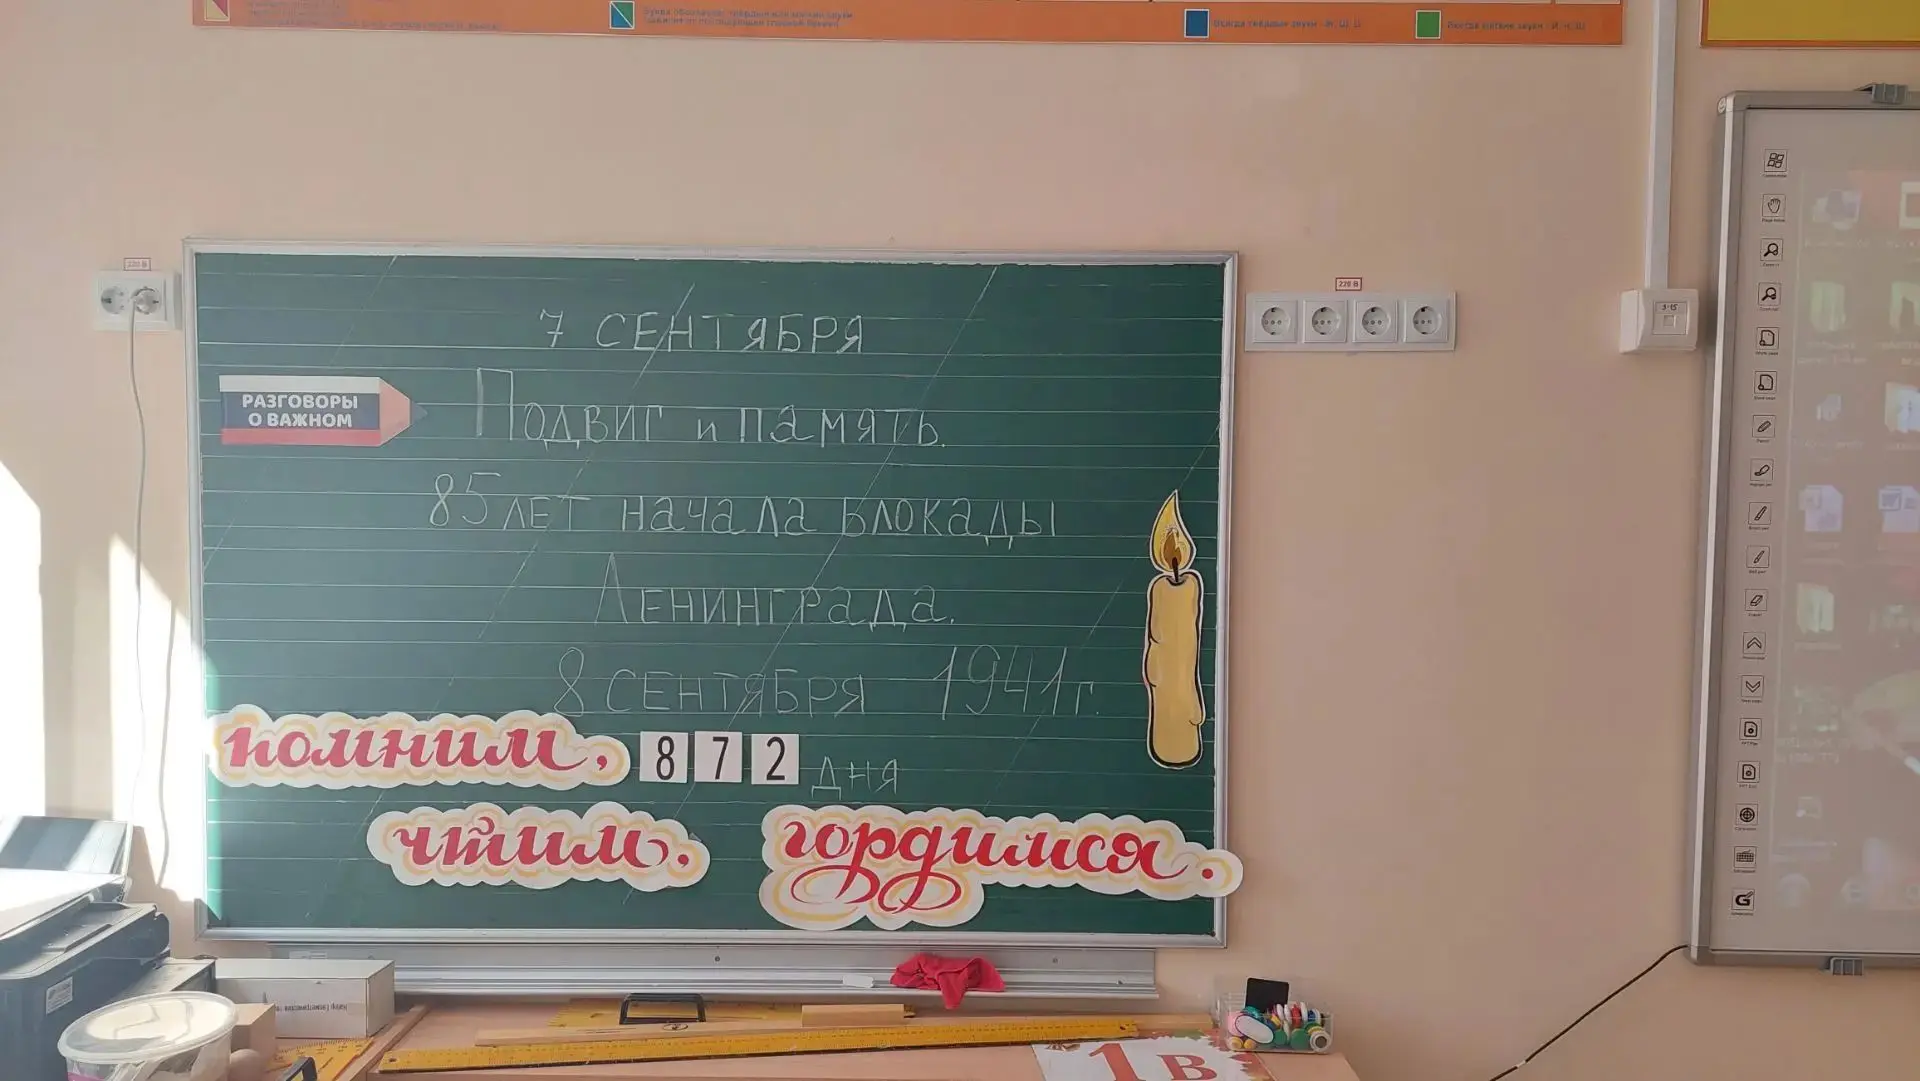 220 В
220 В
3-15
7 СЕНТЯБРЯ
РАЗГОВОРЫ
О ВАЖНОМ
Подвиг и память.
85 лет начала блокады
Ленинграда.
8 сентября 1941 г.
помним, 872 дня
чтим, гордимся.
1 В